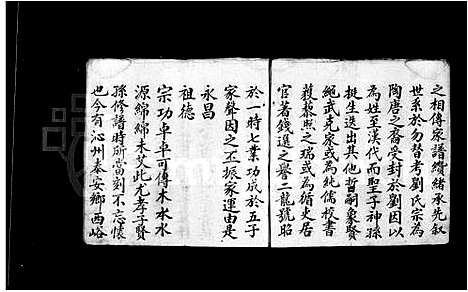 之相傳家譜纘緒承先叙
世系於勿替考劉氏宗為
陶唐之裔受封於劉因以
為姓至漢代而聖子神孫
挺生迭出其他哲嗣象賢
繩武克家或為純儒校書
藜照之瑞或為循吏居
官著錢選之譽二龍號昭
於一時七業功成於五子
家聲因之丕振家運由是
永昌
祖德
宗功卓卓可傳木本水
源綿綿未艾此尤孝子賢
孫修譜時所當刻不忘懷
也今有沁州秦安鄉西峪